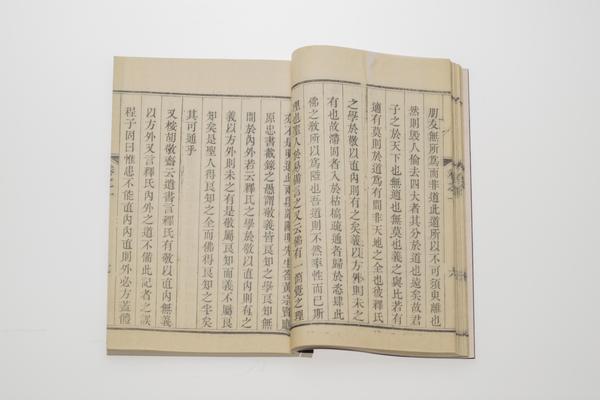 朋友無所爲而非道此道所以不可須臾離也
然則毀人倫去四大者其分於道也遠矣故君
子之於天下也無適也無莫也義之與比若有
適有莫則於道爲有間非天地之全也彼釋氏
之學於敬以直內則有之矣義以方外則未之
有也故滯固者入於枯槁疏通者歸於恣肆此
佛之教所以爲隘也吾道則不然率性而已斯
理也聖人於易備言之又云佛有一箇覺之理
陽明先生答黃宗賢應
原忠書載錄之愚謂敬義皆良知之學良知無
間於內外若云釋氏之學於敬以直內則有之
義以方外則未之有是敬屬良知而義不屬良
知矣是聖人得良知之全而佛得良知之半矣
其可通乎
又按胡敬齋云遺書言釋氏有敬以直內無義
以方外又言釋氏內外之道不備此記者之誤
程子固曰惟患不能直內內直則外必方蓋體
卷之一